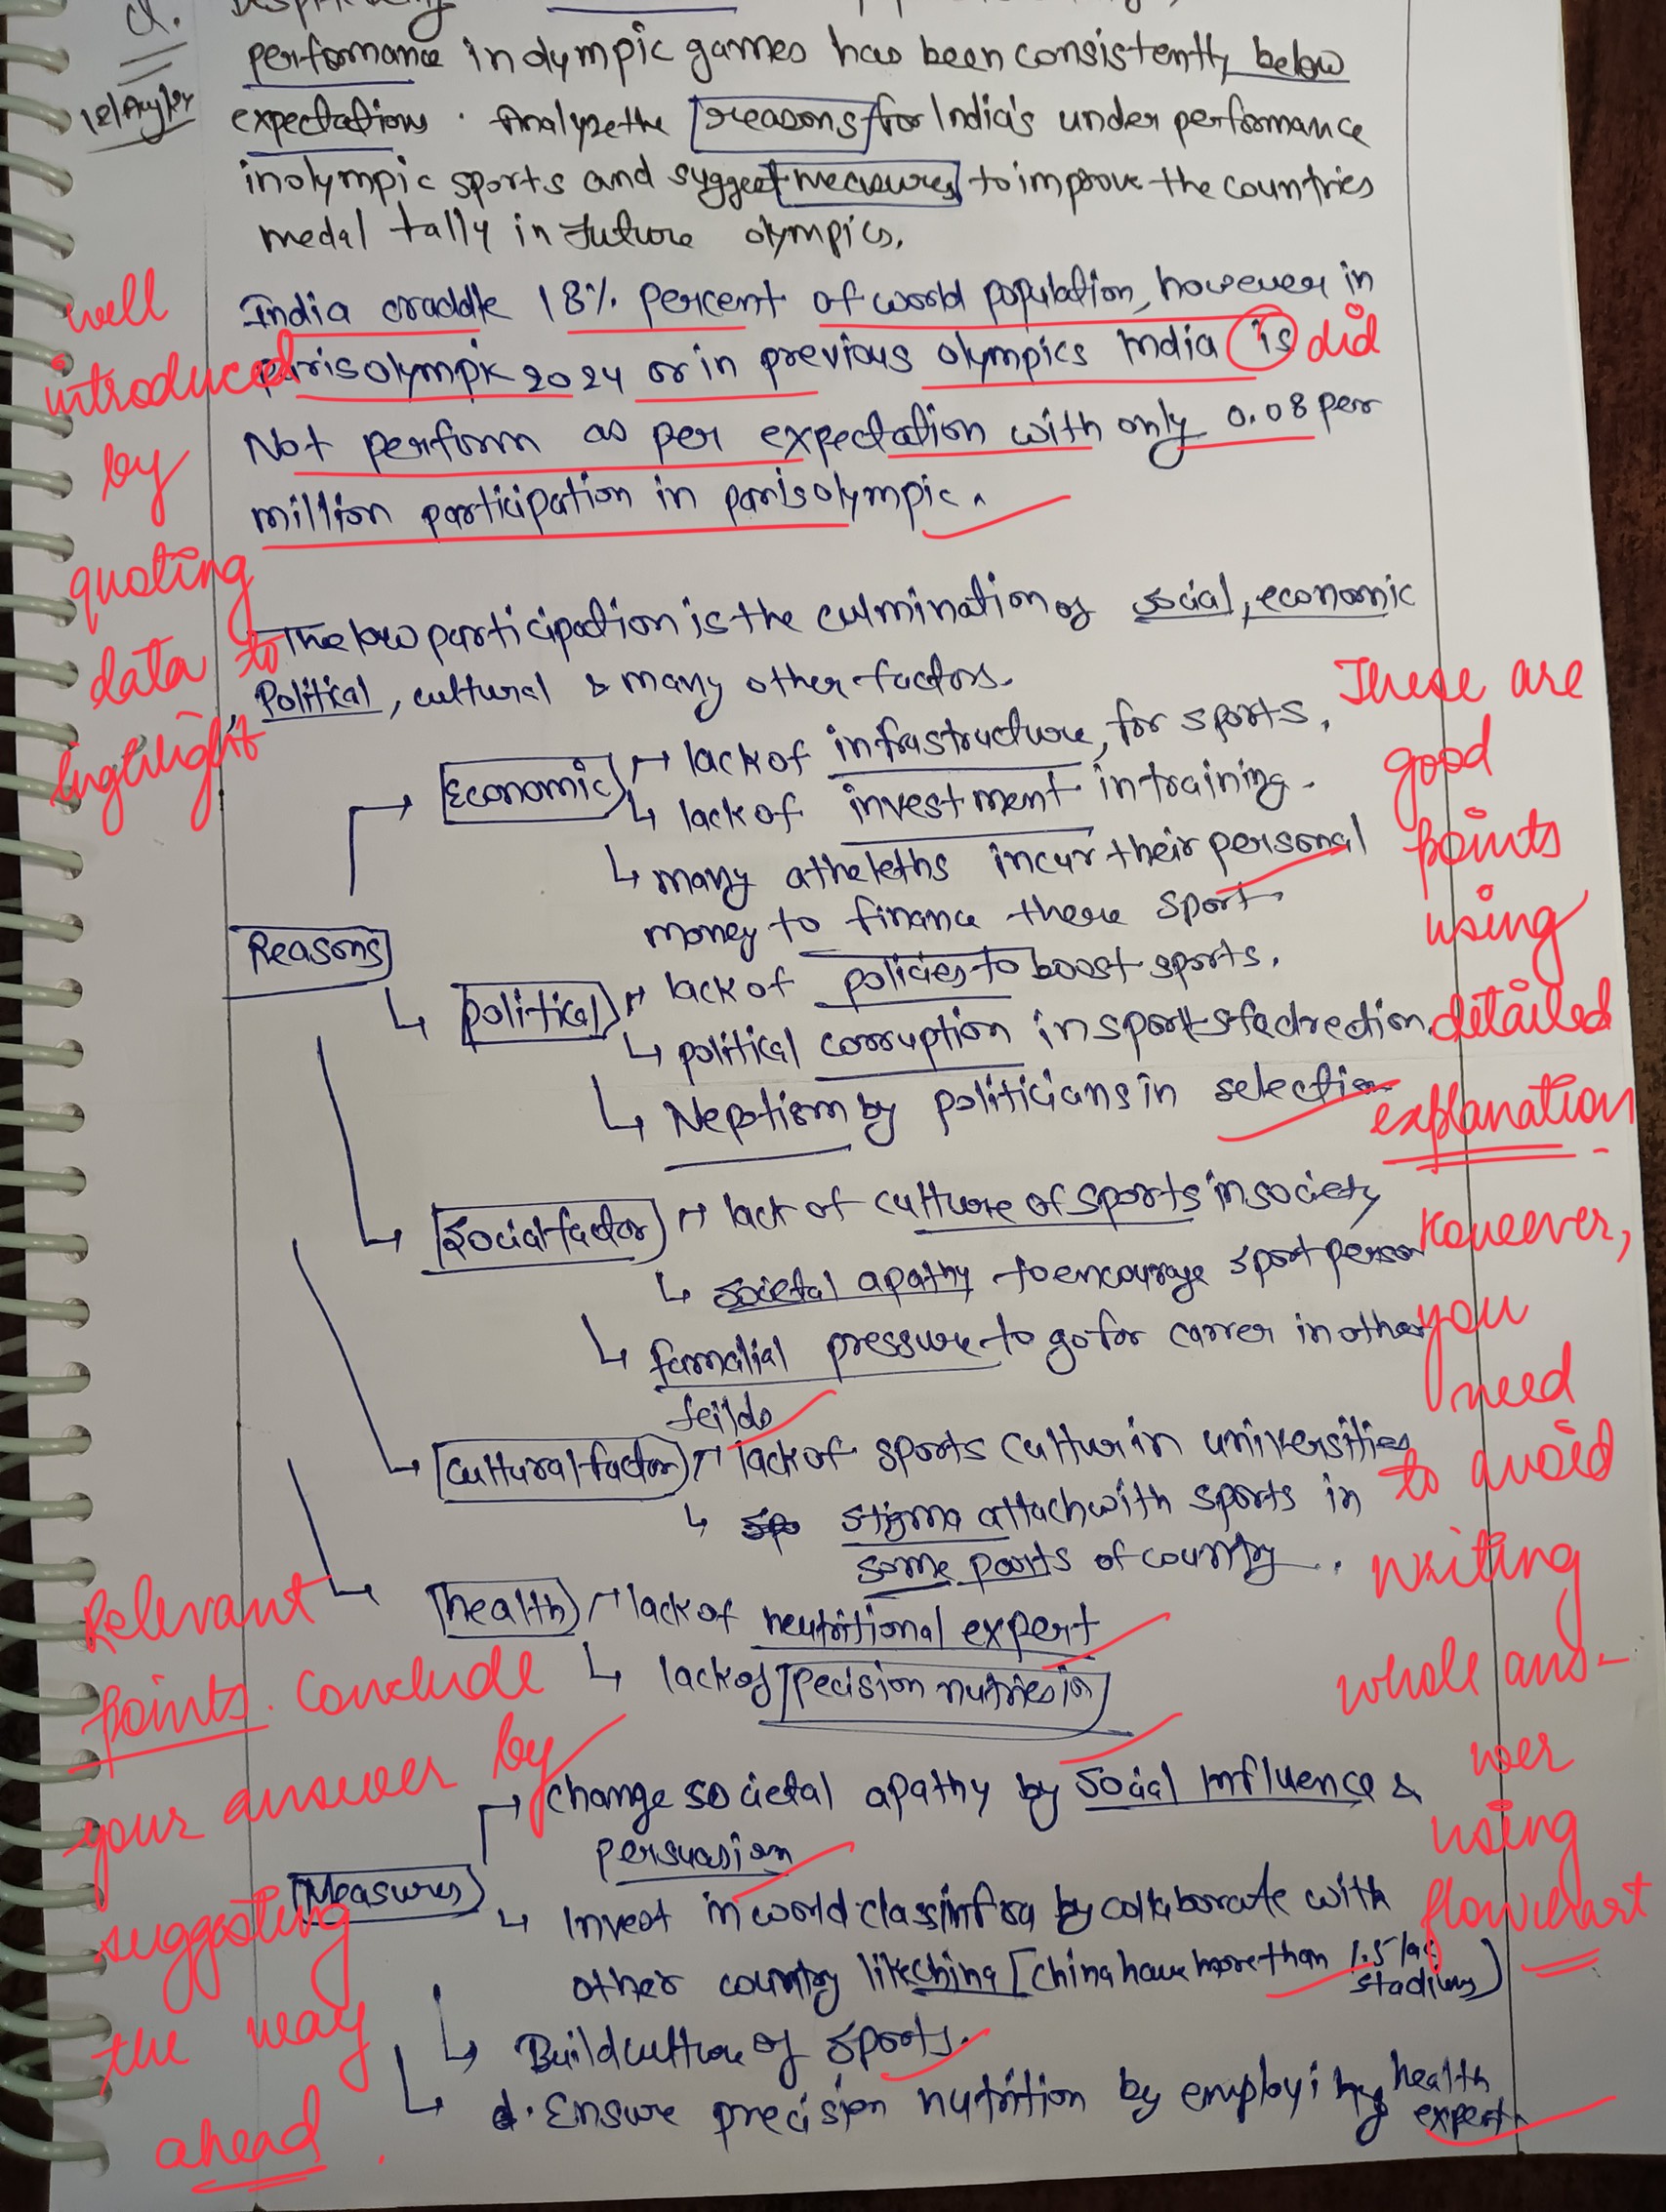 Q.
performance in olympic games has been consistently below
12/Aug/24
expectations. Analyze the reasons for India's under performance
in olympic sports and suggest measures to improve the countries
medal tally in future olympics.
India craddle 18% percent of world population, however in
parisolympic 2024 or in previous olympics India is did
Not perform as per expectation with only 0.08 per
million participation in parisolympic.
well
introduced
by
quoting
data to
highlight
The low participation is the culmination of social, economic
, Political, cultural & many other factors.
Reasons
Economic
lack of infrastructure, for sports.
lack of investment in training.
many atheleths incur their personal
money to finance there sport
Political
lack of policies to boost sports.
political corruption in sports
Nepotism by politicians in selection
Social factor
lack of culture of sports in society
societal apathy to encourage sport person
familial pressure to go for carrer in other
feilds
Cultural factor
lack of sports cultur in universities
stigma attach with sports in
some parts of country.
health
lack of neutritional expert
lack of pecision
These are
good
points
using
detailed
explanation
However,
you
need
to avoid
writing
whole ans-
wer
using
flowchart
Measures
change societal apathy by social Influence &
persuasion
Invest in world class infra by collaborate with
other country like china [China have more than 1.5 lac
stadiums]
Build culture of sports.
d. Ensure precision nutrition by employing health
expert
Relevant
points. Conclude
your answer by
suggesting
the way
ahead.